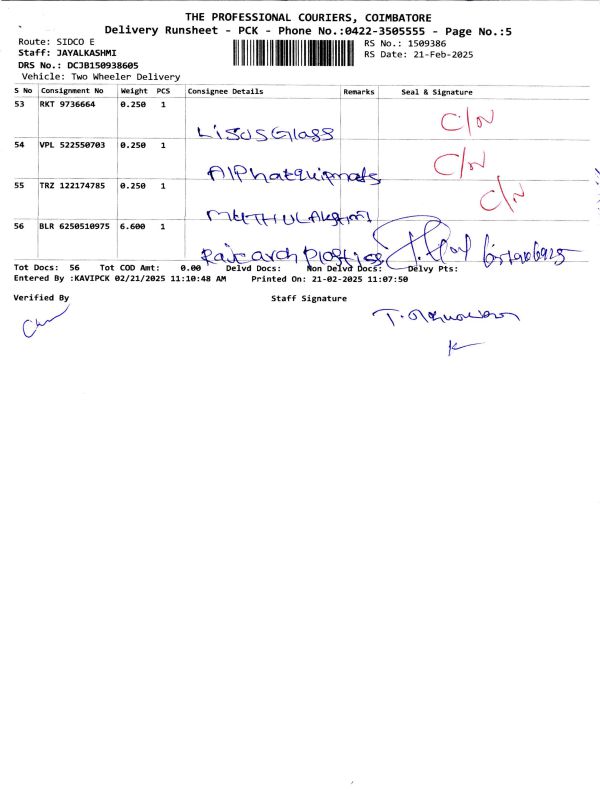 THE PROFESSIONAL COURIERS, COIMBATORE
Delivery Runsheet - PCK - Phone No.:0422-3505555 - Page No.:5
Route: SIDCO E
RS No.: 1509386
Staff: JAYALKASHMI
RS Date: 21-Feb-2025
DRS No.: DCJB150938605
Vehicle: Two Wheeler Delivery
S No Consignment No Weight PCS Consignee Details Remarks Seal & Signature
53 RKT 9736664 0.250 1
Glass C/N
54 VPL 522550703 0.250 1
C/N
55 TRZ 122174785 0.250 1
C/N
56 BLR 6250510975 6.600 1
Tot Docs: 56 Tot COD Amt: 0.00 Delvd Docs: Non Delvd Docs: Delvy Pts:
Entered By :KAVIPCK 02/21/2025 11:10:48 AM Printed On: 21-02-2025 11:07:50
Verified By Staff Signature